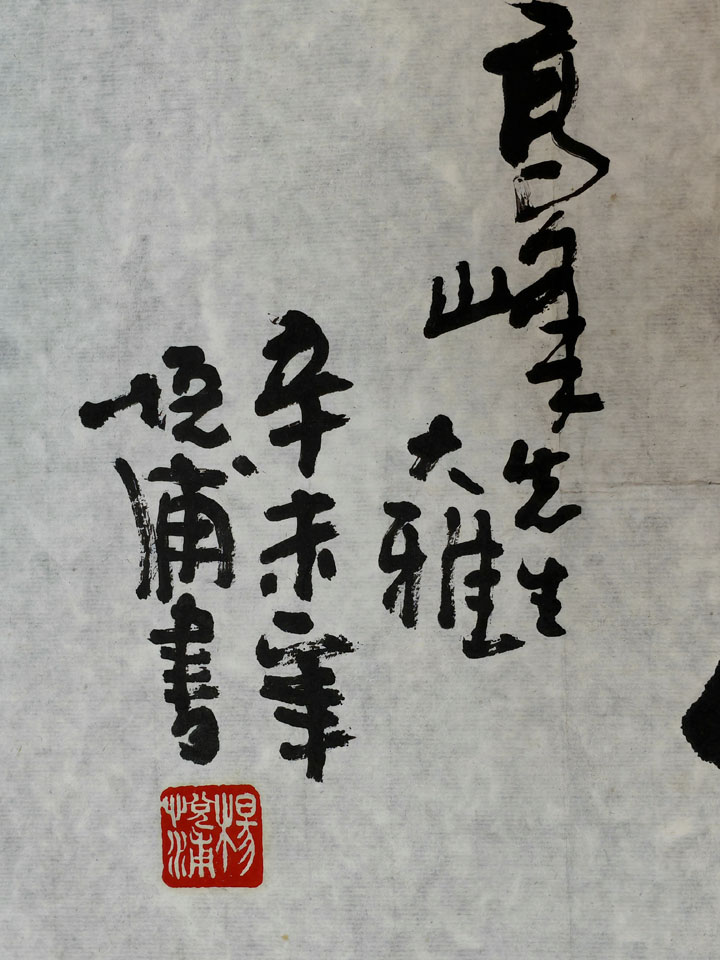 高峰先生
大雅
辛未年
悦浦書
楊悅浦